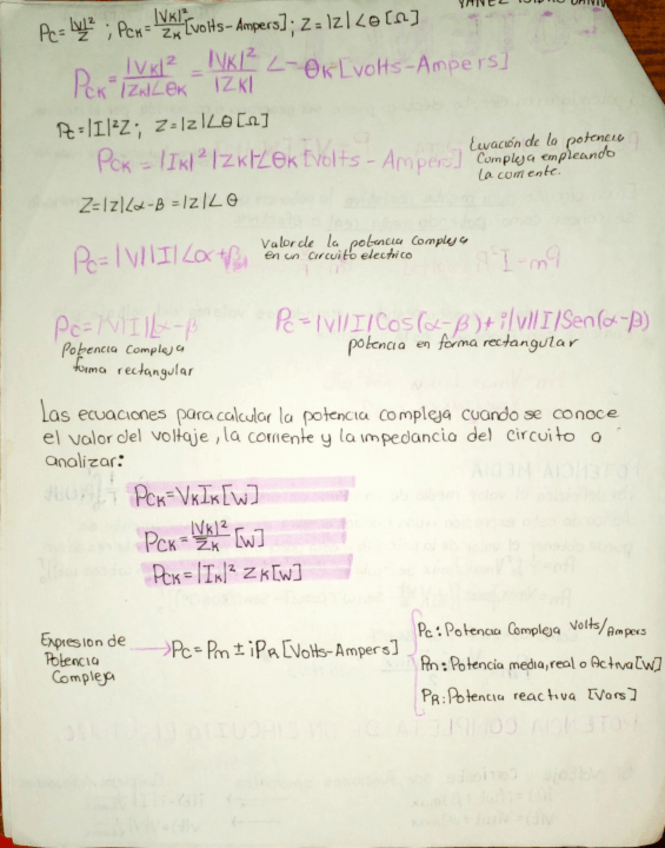 YAÑEZ ISIDRO DANIE
Pc = |V|²/Z ; PcK = |VK|²/ZK [volts-Ampers] ; Z = |Z| ∠θ [Ω]
PcK = |VK|²/|ZK|∠θK = |VK|²/|ZK| ∠-θK [volts-Ampers]
Pc = |I|²Z ; Z = |z| ∠θ [Ω]
PcK = |IK|² |ZK| ∠θK [Volts - Ampers]
Euación de la potencia
Compleja empleando
la corriente.
Z = |Z|∠α-β = |Z|∠θ
Pc = |V||I| ∠α+β
Valor de la potencia Compleja
en un circuito electrico
Pc = |V|I|∠α-β
Potencia Compleja
forma rectangular
Pc = |V||I|Cos(α-β) + i|V||I|Sen(α-β)
potencia en forma rectangular
Las ecuaciones para calcular la potencia compleja cuando se conoce
el valor del voltaje, la corriente y la impedancia del circuito a
analizar:
PcK = VK IK [W]
PcK = |VK|²/ZK [W]
PcK = |IK|² ZK [W]
Expresion de
Potencia
Compleja
→ Pc = Pm ± iPR [Volts-Ampers]
Pc: Potencia Compleja Volts/Ampers
Pm: Potencia media, real o Activa [W]
PR: Potencia reactiva [Vars]